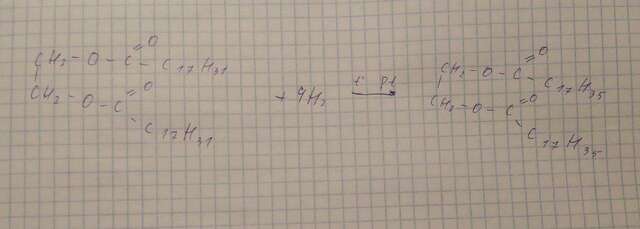 CH₂-O-C=O-C₁₇H₃₁
CH₂-O-C=O-C₁₇H₃₁
+ 4H₂ t Pt →
CH₂-O-C=O-C₁₇H₃₅
CH₂-O-C=O-C₁₇H₃₅